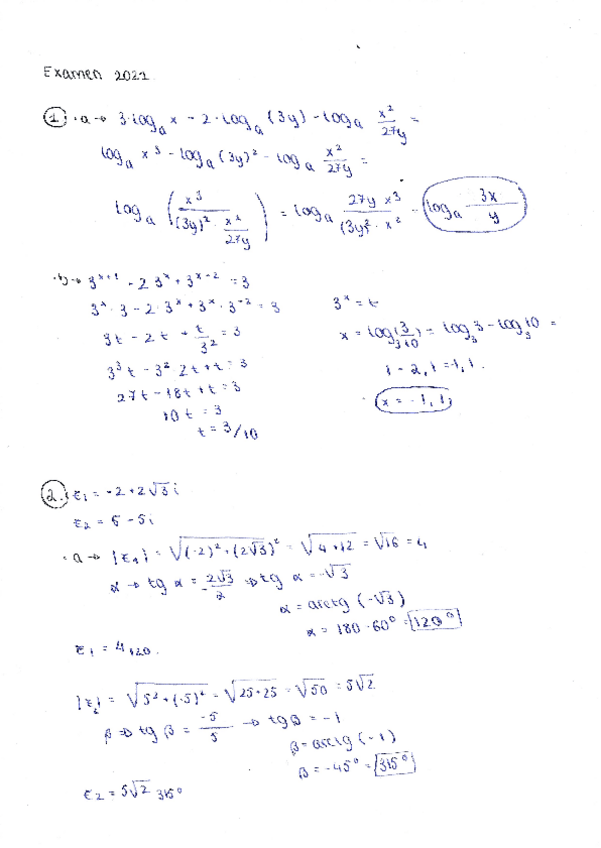 Examen 2021
1 · a → 3·log_a x - 2·log_a (3y) - log_a x²/27y =
log_a x³ - log_a (3y)² - log_a x²/27y =
log_a (x³/((3y)² · x²/27y)) = log_a 27y x³/((3y)² · x²) = log_a 3x/y
·b → 3^(x+1) - 2·3^x + 3^(x-2) = 3
3^x · 3 - 2·3^x + 3^x · 3^-2 = 3
3t - 2t + t/3² = 3
3³t - 3²·2t + t = 3
27t - 18t + t = 3
10t = 3
t = 3/10
3^x = t
x = log_3 (3/10) = log_3 3 - log_3 10 =
1 - 2,1 = -1,1.
x = -1,1
2. z₁ = -2 + 2√3 i
z₂ = 5 - 5i
· a → |z₁| = √((-2)² + (2√3)²) = √(4+12) = √16 = 4
α → tg α = 2√3/-2 → tg α = -√3
α = arctg (-√3)
α = 180 - 60° = 120°
z₁ = 4 120°
|z₂| = √(5² + (-5)²) = √(25+25) = √50 = 5√2
β → tg β = -5/5 → tg β = -1
β = arctg (-1)
β = -45° = 315°
z₂ = 5√2 315°